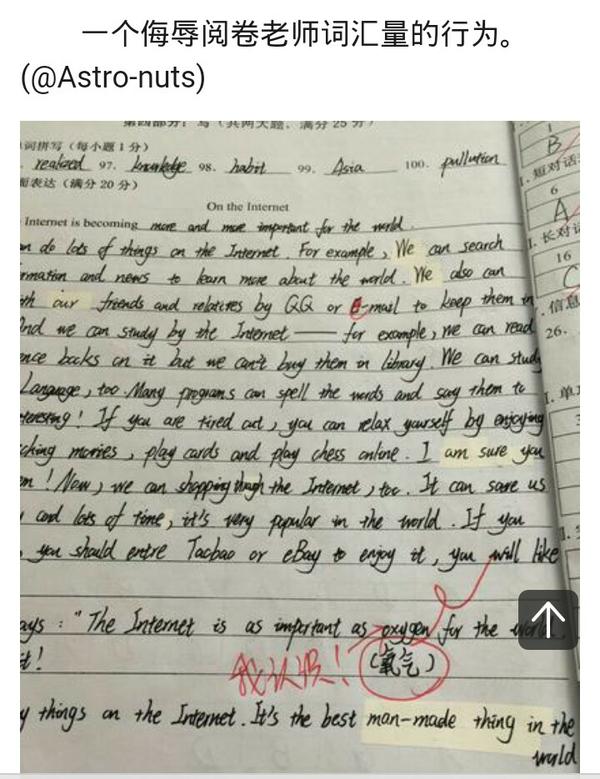 一个侮辱阅卷老师词汇量的行为。
(@Astro-nuts)
第四部分：写（共两大题，满分 25 分）
词拼写（每小题 1 分）
realized 97. knowledge 98. habit 99. Asia 100. pullution
面表达（满分 20 分）
On the Internet
Internet is becoming more and more important for the world.
do lots of things on the Internet. For example, We can search
and news to learn more about the world. We also can
our friends and relatives by QQ or E-mail to keep them in
And we can study by the Internet —— for example, we can read
books on it but we can't buy them in library. We can study
Language, too. Many programs can spell the words and say them to
! If you are tired out, you can relax yourself by enjoying
movies, play cards and play chess online. I am sure you
! Now, we can shopping though the Internet, too. It can save us
and lots of time, it's very popular in the world. If you
, you should entre Taobao or eBay to enjoy it, you will like
: "The Internet is as important as oxygen for the world.
it!
我认识！
(氧气)
things on the Internet. It's the best man-made thing in the
world
B
1. 短对话
6
A
1. 长对话
16
C
信息
26.
1. 单